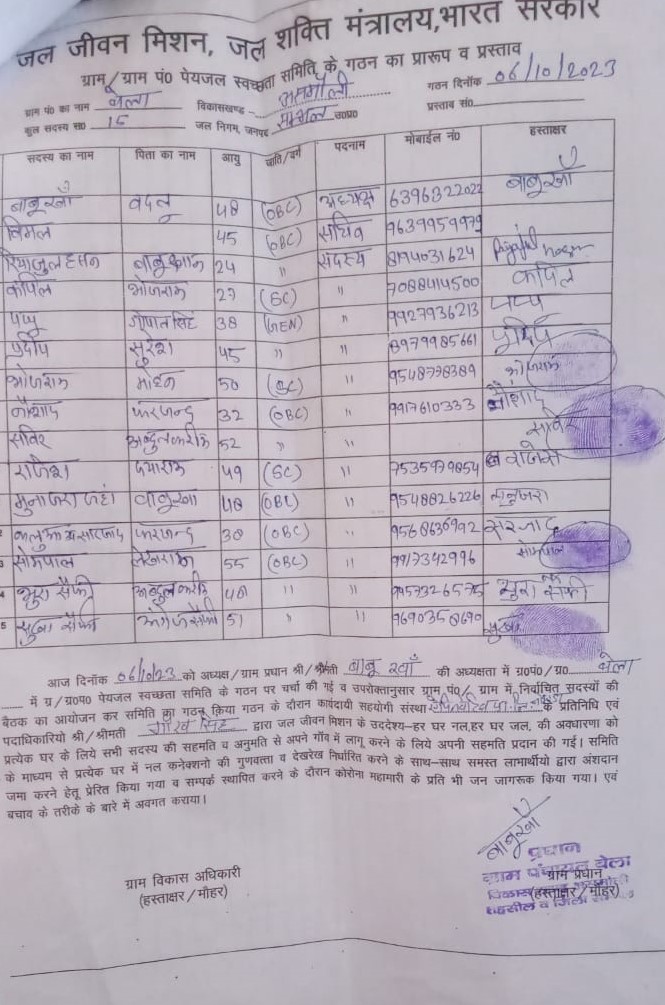 जल जीवन मिशन, जल शक्ति मंत्रालय,भारत सरकार
ग्राम/ग्राम पं0 पेयजल स्वच्छता समिति के गठन का प्रारूप व प्रस्ताव
ग्राम पं0 का नाम बेला विकासखण्ड- असमोली गठन दिनाँक 06/10/2023
कुल सदस्य सं0 15 जल निगम, जनपद सम्भल उ0प्र0 प्रस्ताव सं0
सदस्य का नाम पिता का नाम आयु जाति/वर्ग पदनाम मोबाईल नं0 हस्ताक्षर
बाबू खाँ वदलू 48 (OBC) अध्यक्ष 6396322022 बाबू खाँ
विमल 45 (OBC) सचिव 9639959979
रियाजुल हसन 24 " सदस्य 8194031624
कपिल भोजराम 27 (SC) " 7088414500 कपिल
पप्पू गोपाल सिंह 38 (GEN) " 9927936213 पप्पू
प्रदीप सुरेश 45 " " 8979985661 प्रदीप
भोजराम 50 (SC) " 9548778389 भोजराम
नौशाद फरजन्द 32 (OBC) " 9917610333 नौशाद
साबिर अब्दुल करीम 52 " " साबिर
राजेश दयाराम 49 (SC) " 7535979854
मुनाजरा जहां बाबू खा 40 (OBC) " 9548826226
फरजन्द 30 (OBC) " 9568636992
सोमपाल लेखराज 55 (OBC) " 9917342996 सोमपाल
भूरा सैफी अब्दुल करीम 40 " " भूरा सैफी
सैफी 51 " "
आज दिनाँक 06/10/23 को अध्यक्ष/ग्राम प्रधान श्री/श्रीमती बाबू खाँ की अध्यक्षता में ग्र0पं0/ग्र0 बेला
में ग्र/ग्र0प0 पेयजल स्वच्छता समिति के गठन पर चर्चा की गई व उपरोक्तानुसार ग्राम पं0/ ग्राम में निर्वाचित सदस्यों की
बैठक का आयोजन कर समिति का गठन किया गया गठन के दौरान कार्यदायी सहयोगी संस्था के प्रतिनिधि एवं
पदाधिकारियो श्री/श्रीमती गौरव सिंह द्वारा जल जीवन मिशन के उददेश्य-हर घर नल,हर घर जल, की अवधारणा को
प्रत्येक घर के लिये सभी सदस्य की सहमति व अनुमति से अपने गाँव में लागू करने के लिये अपनी सहमति प्रदान की गई। समिति
के माध्यम से प्रत्येक घर में नल कनेक्शनो की गुणवत्ता व देखरेख निर्धारित करने के साथ-साथ समस्त लाभार्थीयो द्वारा अंशदान
जमा करने हेतू प्रेरित किया गया व सम्पर्क स्थापित करने के दौरान कोरोना महामारी के प्रति भी जन जागरूक किया गया। एवं
बचाव के तरीके के बारे में अवगत कराया।
बाबू खाँ
प्रधान
ग्राम पंचायत बेला
ग्राम विकास अधिकारी ग्राम प्रधान
(हस्ताक्षर/मौहर) (हस्ताक्षर/मौहर)